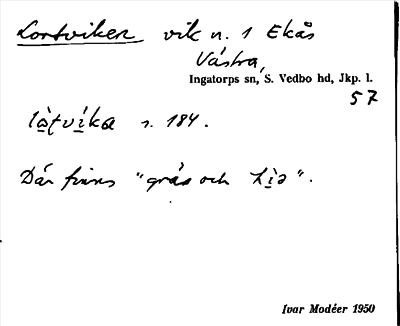 Lortviken vik n. 1 Ekås
Västra,
Ingatorps sn, S. Vedbo hd, Jkp. l.
57
s. 184.
Där finns "gräs och
Ivar Modéer 1950